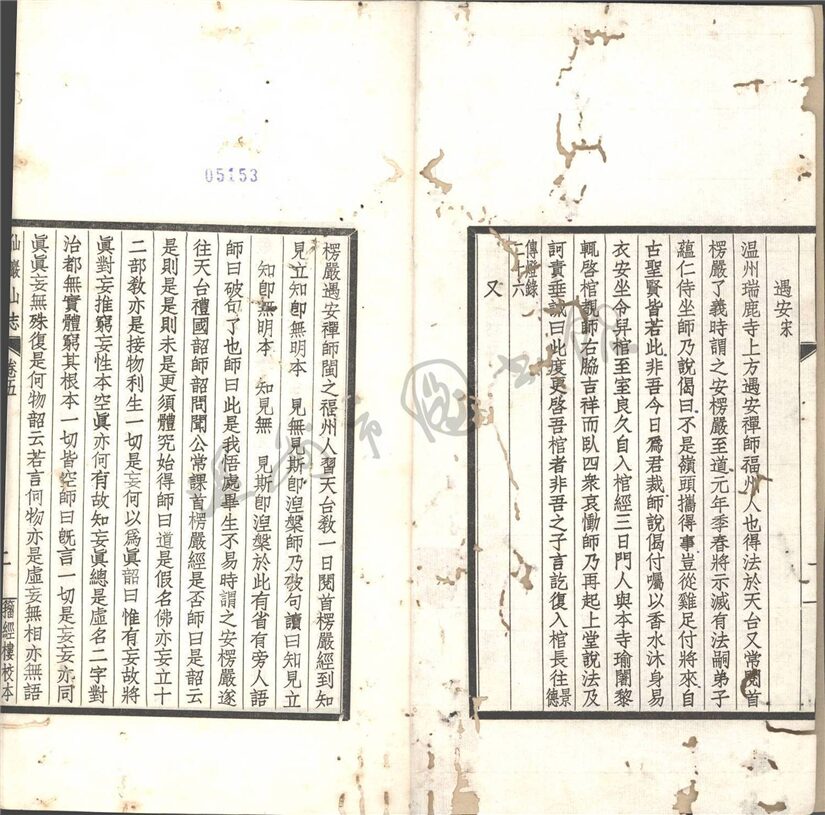 遇安宋
温州瑞鹿寺上方遇安禪師福州人也得法於天台又常閱首
楞嚴了義時謂之安楞嚴至道元年季春將示滅有法嗣弟子
蘊仁侍坐師乃說偈曰不是嶺頭攜得事豈從雞足付將來自
古聖賢皆若此非吾今日爲君裁師說偈付囑以香水沐身易
衣安坐令舁棺至室良久自入棺經三日門人與本寺瑜闍黎
輒啓棺覩師右脇吉祥而臥四衆哀慟師乃再起上堂說法及
訶責垂誡曰此度更啓吾棺者非吾之子言訖復入棺長往景德
傳燈錄二十六
又
楞嚴遇安禪師閩之福州人習天台敎一日閱首楞嚴經到知
見立知卽無明本　見無見斯卽湼槃師乃破句讀曰知見立
知卽無明本　知見無　見斯卽湼槃於此有省有旁人語
師曰破句了也師曰此是我悟處畢生不易時謂之安楞嚴遂
往天台禮國韶師韶問聞公常課首楞嚴經是否師曰是韶云
是則是是則未是更須體究始得師曰道是假名佛亦妄立十
二部敎亦是接物利生一切是妄何以爲眞韶曰惟有妄故將
眞對妄推窮妄性本空眞亦何有故知妄眞總是虛名二字對
治都無實體窮其根本一切皆空師曰旣言一切是妄妄亦同
眞眞妄無殊復是何物韶云若言何物亦是虛妄無相亦無語
仙巖山志　卷五　二　籀經樓校本
05153